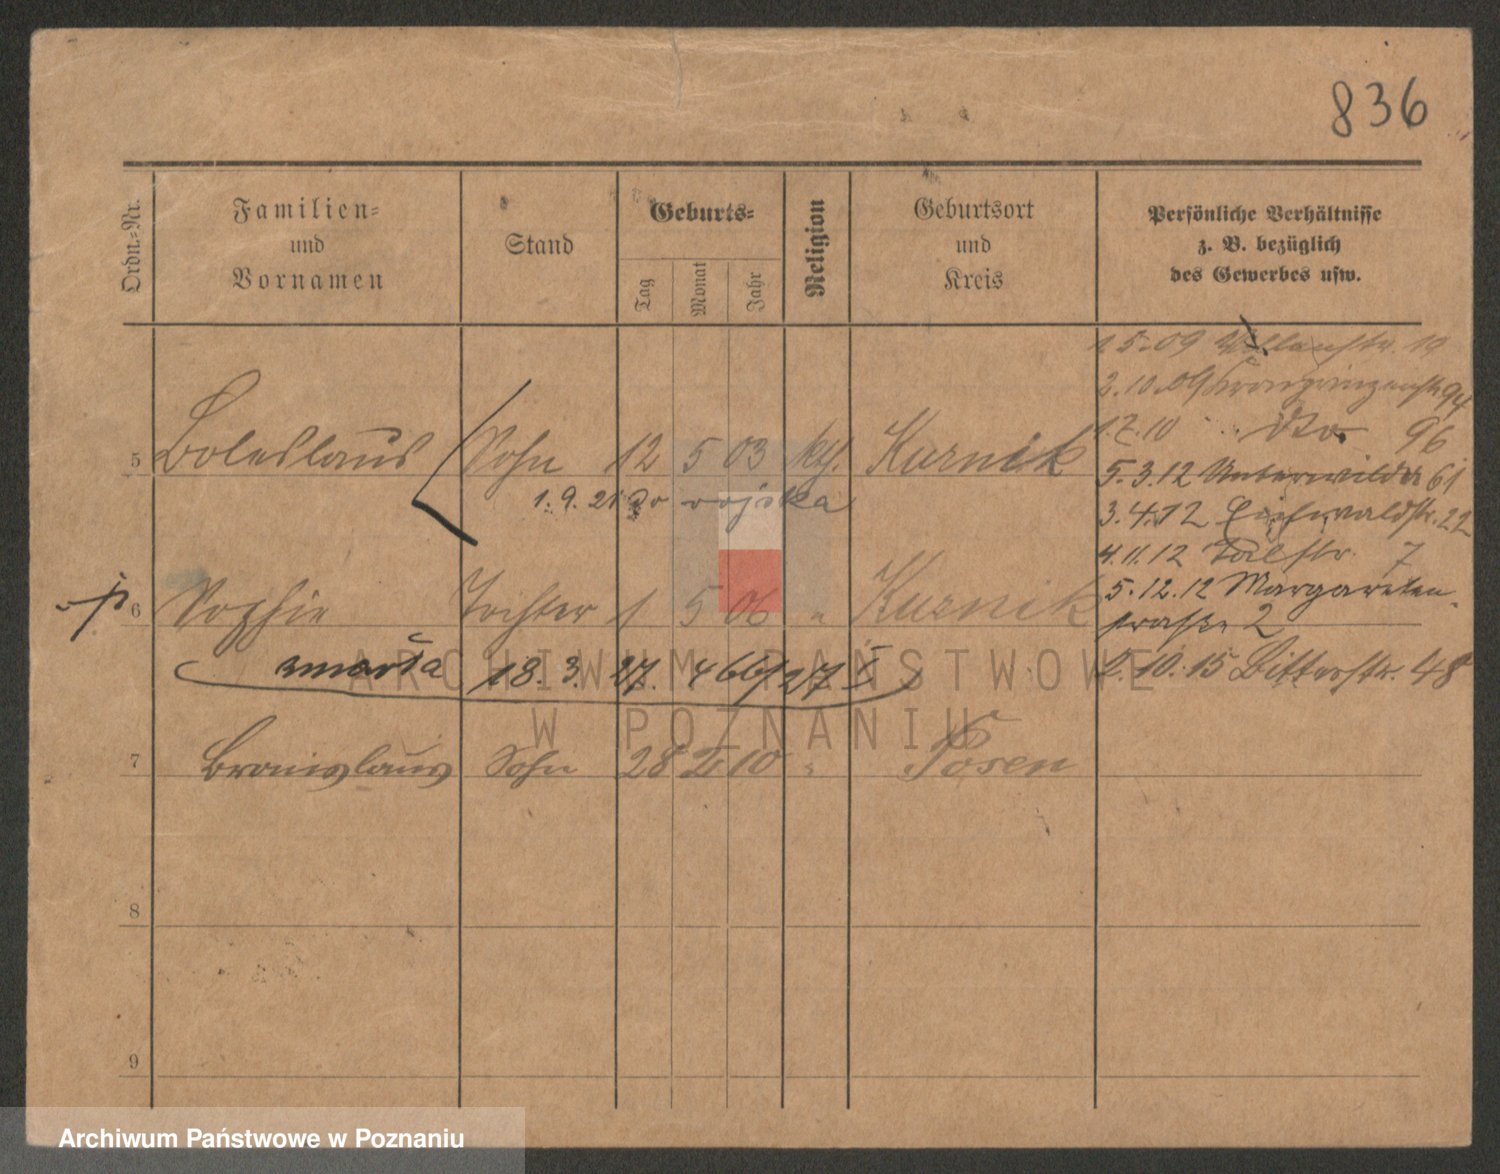 836
Ordn.-Nr.
Familien-
und
Vornamen
Stand
Geburts-
Tag
Monat
Jahr
Religion
Geburtsort
und
Kreis
Persönliche Verhältnisse
z. B. bezüglich
des Gewerbes usw.
1.5.09 19
2.10.09 Kronprinzenstr 94
1.7.10 dto 96
5 Boleslaus Sohn 12 5 03 kth. Kurnik
5.3.12 Unterwilda 61
1.9.21 do wojska
3.4.12 Eichwaldstr. 22
4.11.12 Talstr. 7
6 Sophie Tochter 1 5 06 " Kurnik
5.12.12 Margareten-
straße 2
zmarła 18.3.27. 466/27 I
2.10.15 Bitterstr. 48
7 Bronislaus Sohn 28 10 " Posen
8
9
ARCHIWUM PAŃSTWOWE
W POZNANIU
Archiwum Państwowe w Poznaniu